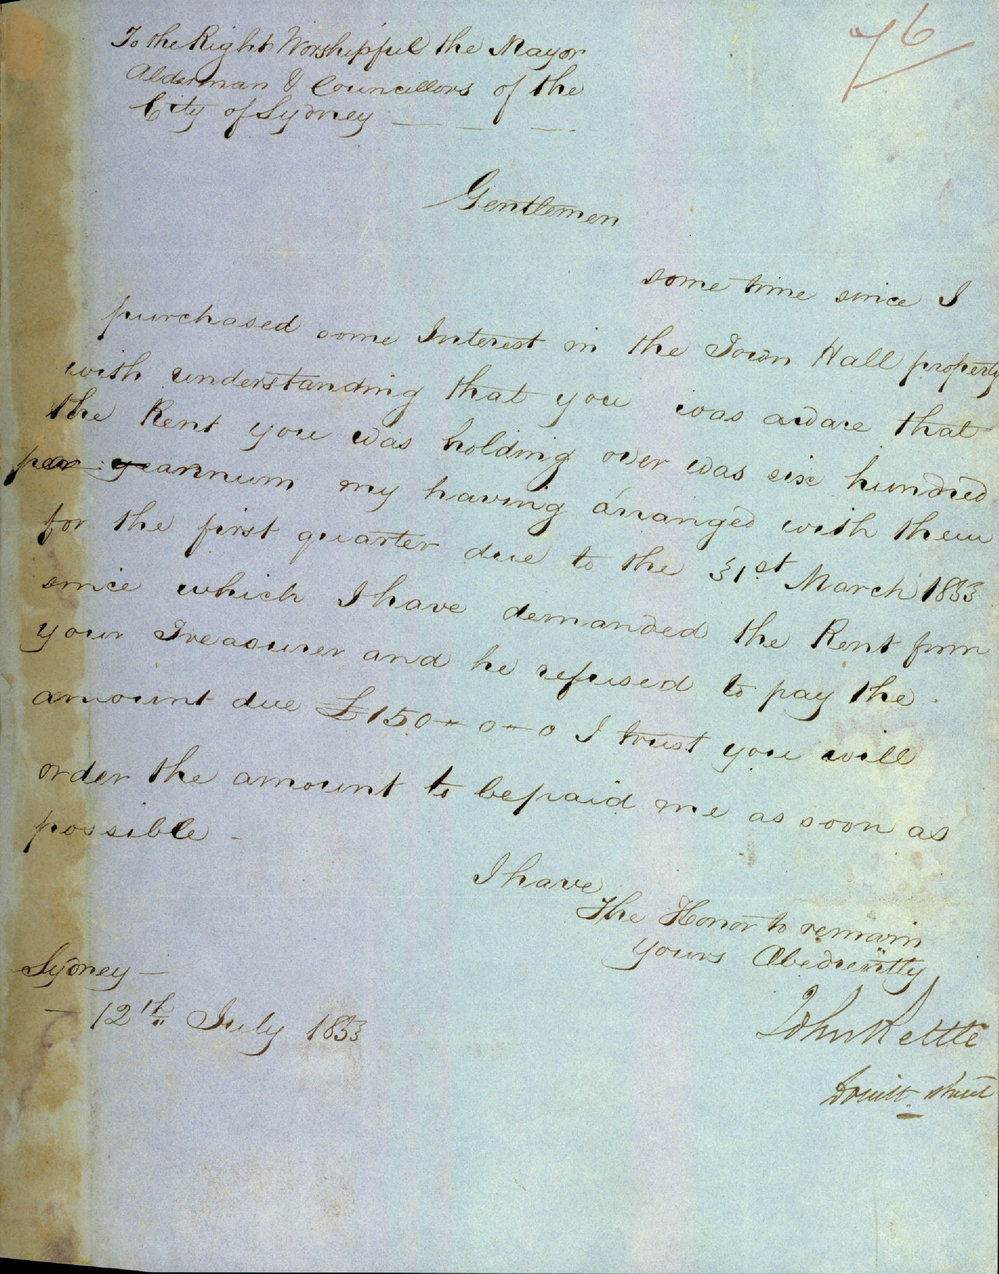 76
To the Right Worshipful the Mayor
Alderman & Councillors of the
City of Sydney
Gentlemen
some time since I
purchased some Interest in the Town Hall property
with understanding that you was aware that
the Rent you was holding over was six hundred
per annum my having arranged with them
for the first quarter due to the 31st March 1853
since which I have demanded the Rent from
your Treasurer and he refused to pay the
amount due £150-0-0 I trust you will
order the amount to be paid me as soon as
possible -
I have
The Honor to remain
yours Obediently
Sydney -
- 12th July 1853
John Kettle
Druitt Street